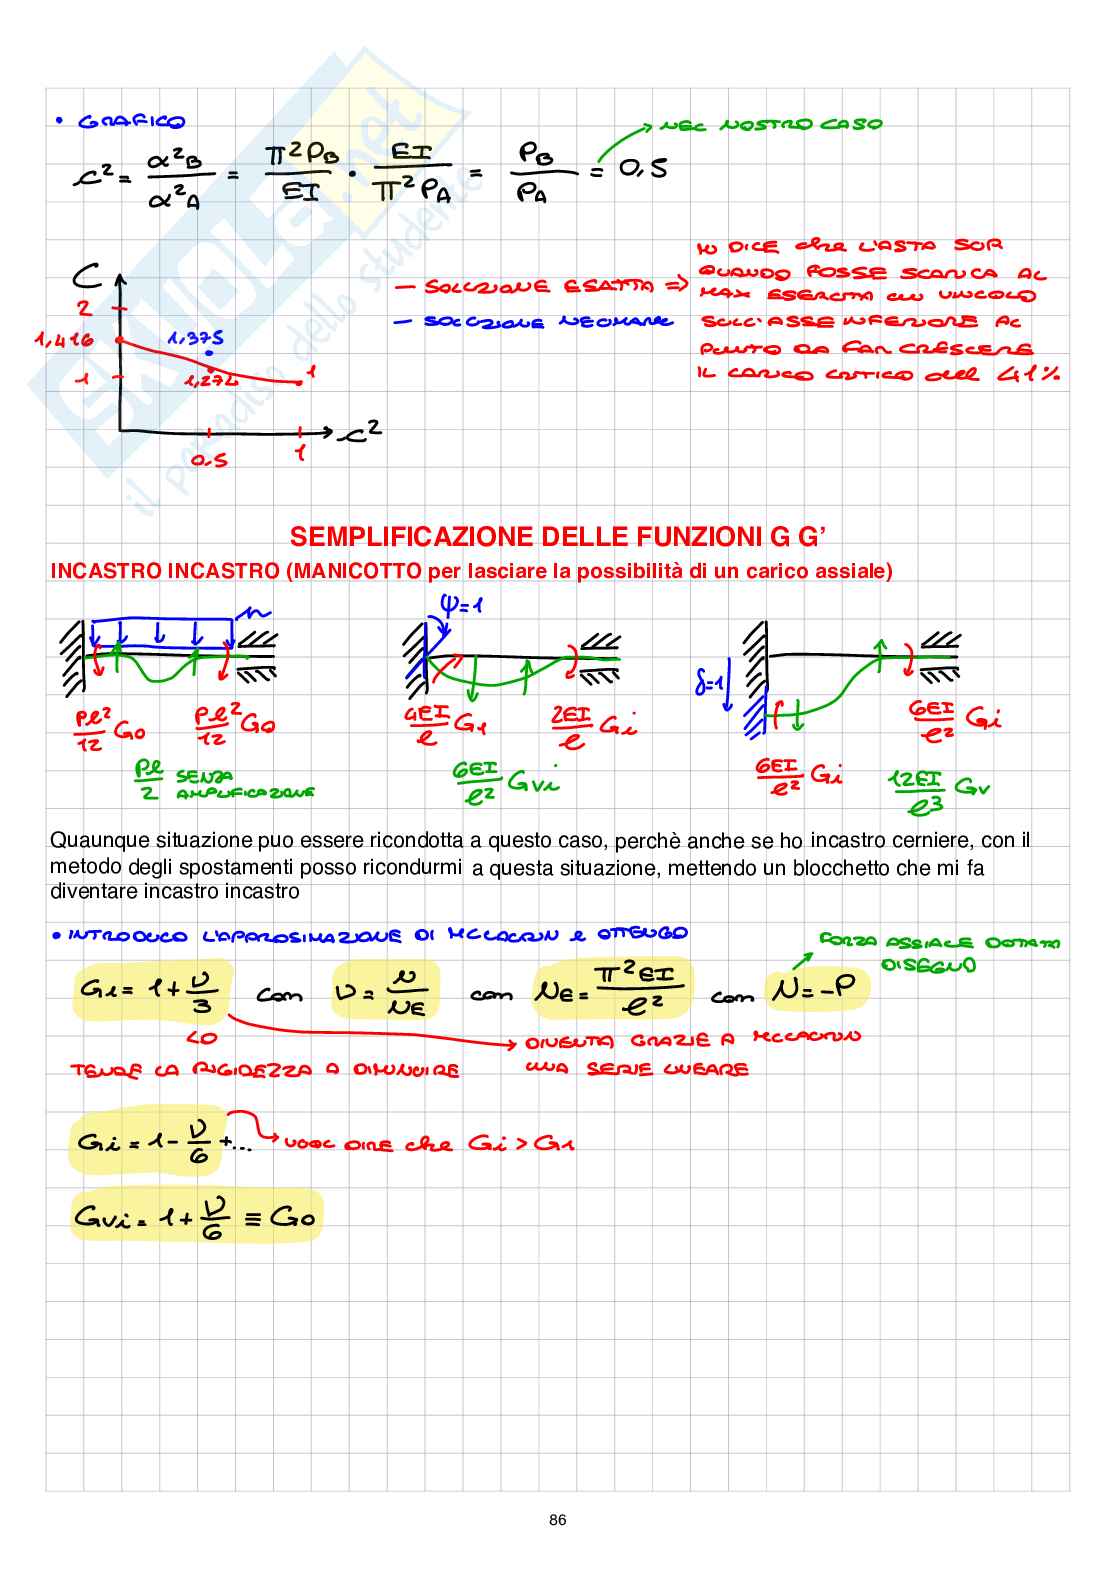 • GRAFICO
c² = α²B / α²A = π²PB / EI · EI / π²PA = PB / PA = 0,5
NEL NOSTRO CASO
C
2
1,416
1,375
1
1,272
1
0,5
1
c²
— SOLUZIONE ESATTA =>
— SOLUZIONE NEUMANN
MI DICE che L'ASTA SUP
QUANDO FOSSE SCARICA AL
MAX ESERCITA UN VINCOLO
SULL'ASSE INFERIORE AL
PUNTO DA FAR CRESCERE
IL CARICO CRITICO del 41%
SEMPLIFICAZIONE DELLE FUNZIONI G G’
INCASTRO INCASTRO (MANICOTTO per lasciare la possibilità di un carico assiale)
Ψ=1
δ=1
Pl²/12 G0
Pl²/12 G0
Pl/2 SENZA
AMPLIFICAZIONE
4EI/l G1
2EI/l Gi
6EI/l² Gvi
6EI/l² Gi
6EI/l² Gi
12EI/l³ Gv
Quaunque situazione puo essere ricondotta a questo caso, perchè anche se ho incastro cerniere, con il
metodo degli spostamenti posso ricondurmi a questa situazione, mettendo un blocchetto che mi fa
diventare incastro incastro
• INTRODUCO L'APPROSIMAZIONE DI MCLAURIN e OTTENGO
FORZA ASSIALE
DISEGNO
G1 = 1 + ν/3 con ν = N/NE con NE = π²EI/l² con N = -P
<0
DIVENTA GRAZIE A MCLAURIN
UNA SERIE LINEARE
TENDE LA RIGIDEZZA A DIMINUIRE
Gi = 1 - ν/6 + ...
VUOL DIRE che Gi > G1
Gvi = 1 + ν/6 ≡ G0
86
SKUOLA.net
il paradiso dello studente